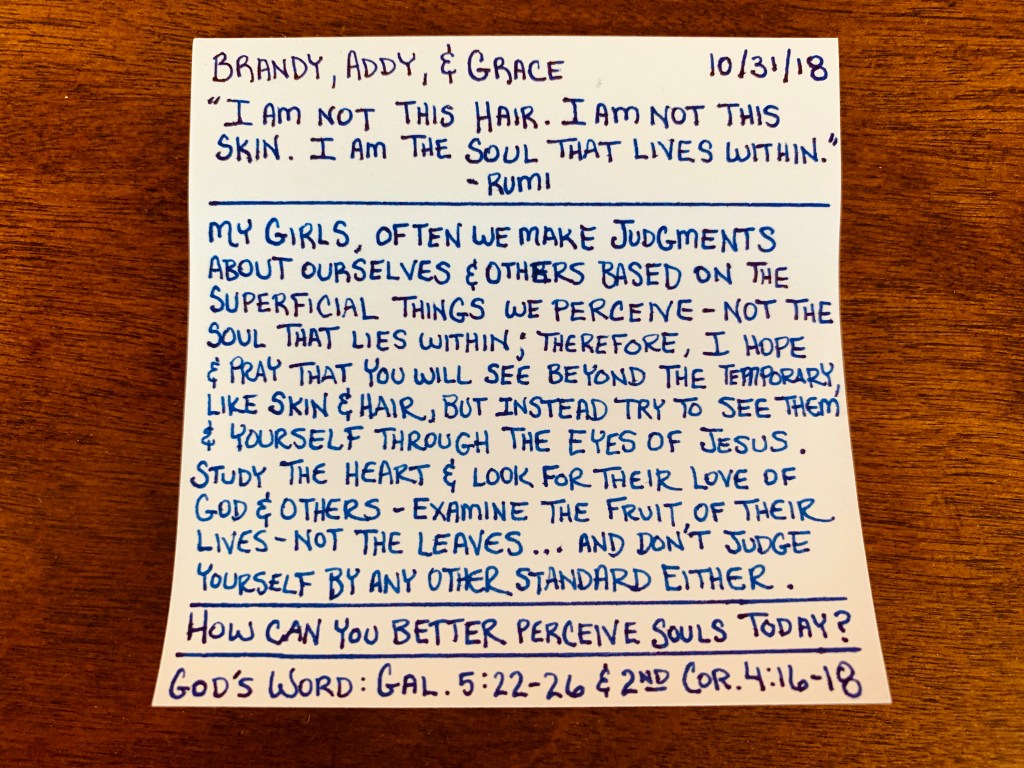 BRANDY, ADDY, & GRACE 10/31/18
"I AM NOT THIS HAIR. I AM NOT THIS
SKIN. I AM THE SOUL THAT LIVES WITHIN."
- RUMI
MY GIRLS, OFTEN WE MAKE JUDGMENTS
ABOUT OURSELVES & OTHERS BASED ON THE
SUPERFICIAL THINGS WE PERCEIVE - NOT THE
SOUL THAT LIES WITHIN; THEREFORE, I HOPE
& PRAY THAT YOU WILL SEE BEYOND THE TEMPORARY,
LIKE SKIN & HAIR, BUT INSTEAD TRY TO SEE THEM
& YOURSELF THROUGH THE EYES OF JESUS.
STUDY THE HEART & LOOK FOR THEIR LOVE OF
GOD & OTHERS - EXAMINE THE FRUIT OF THEIR
LIVES - NOT THE LEAVES... AND DON'T JUDGE
YOURSELF BY ANY OTHER STANDARD EITHER.
HOW CAN YOU BETTER PERCEIVE SOULS TODAY?
GOD'S WORD: GAL. 5:22-26 & 2ND COR. 4:16-18